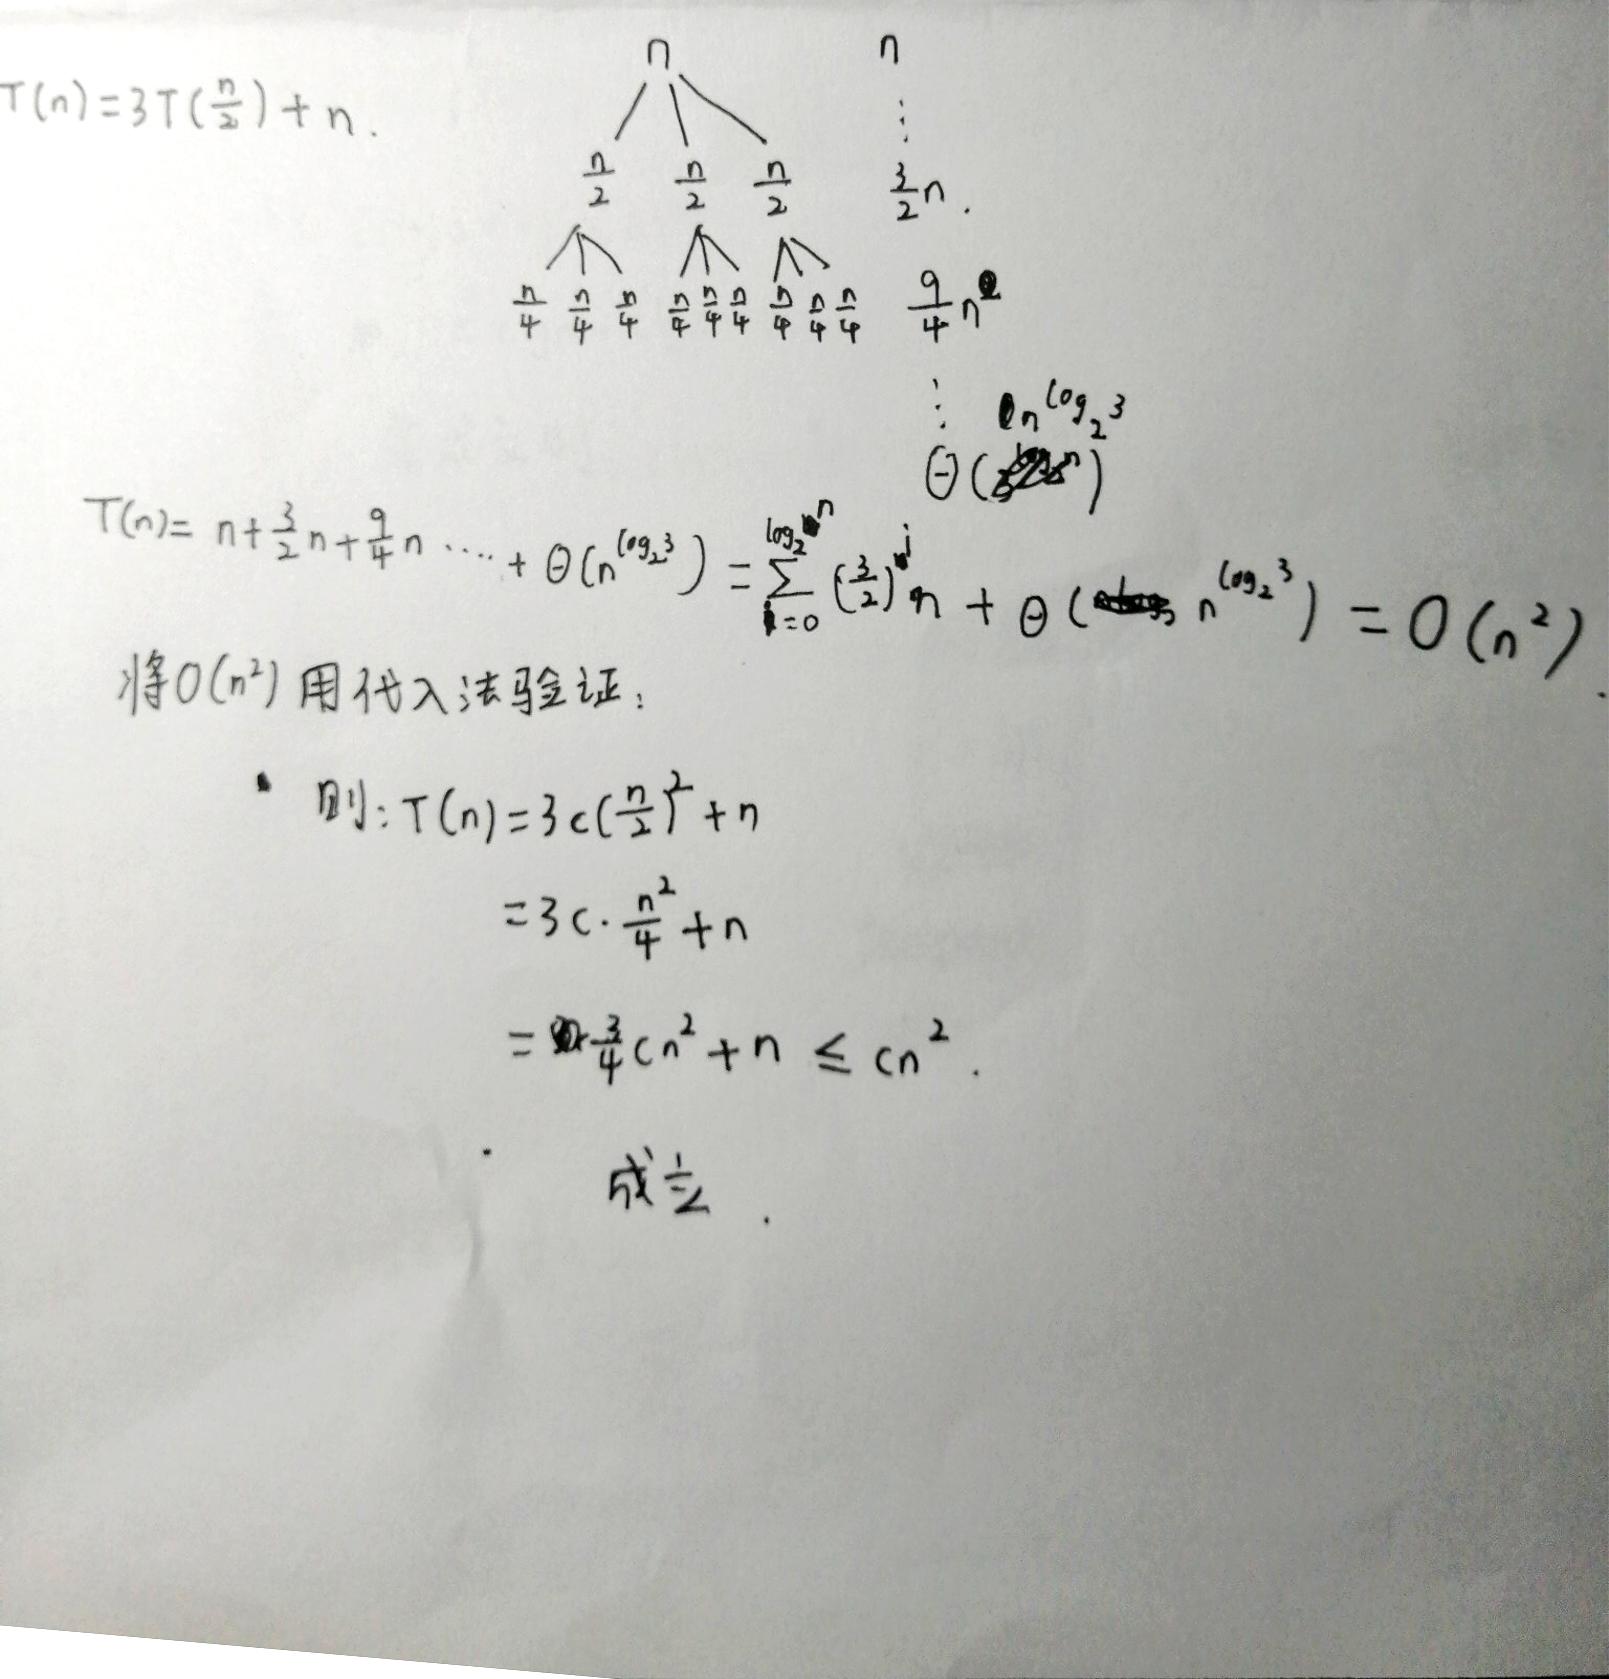 T(n)=3T(n/2)+n.
n n
⋮
n/2 n/2 n/2 3/2 n.
n/4 n/4 n/4 n/4 n/4 n/4 n/4 n/4 n/4 9/4 n
⋮
Θ(n^log₂3)
T(n)= n+3/2 n+9/4 n ····+ Θ(n^log₂3) = Σ_{i=0}^{log₂n} (3/2)^i n + Θ(n^log₂3) = O(n²).
将O(n²)用代入法验证:
则:T(n)=3c(n/2)²+n
=3c·n²/4+n
=3/4cn²+n ≤ cn².
成立.